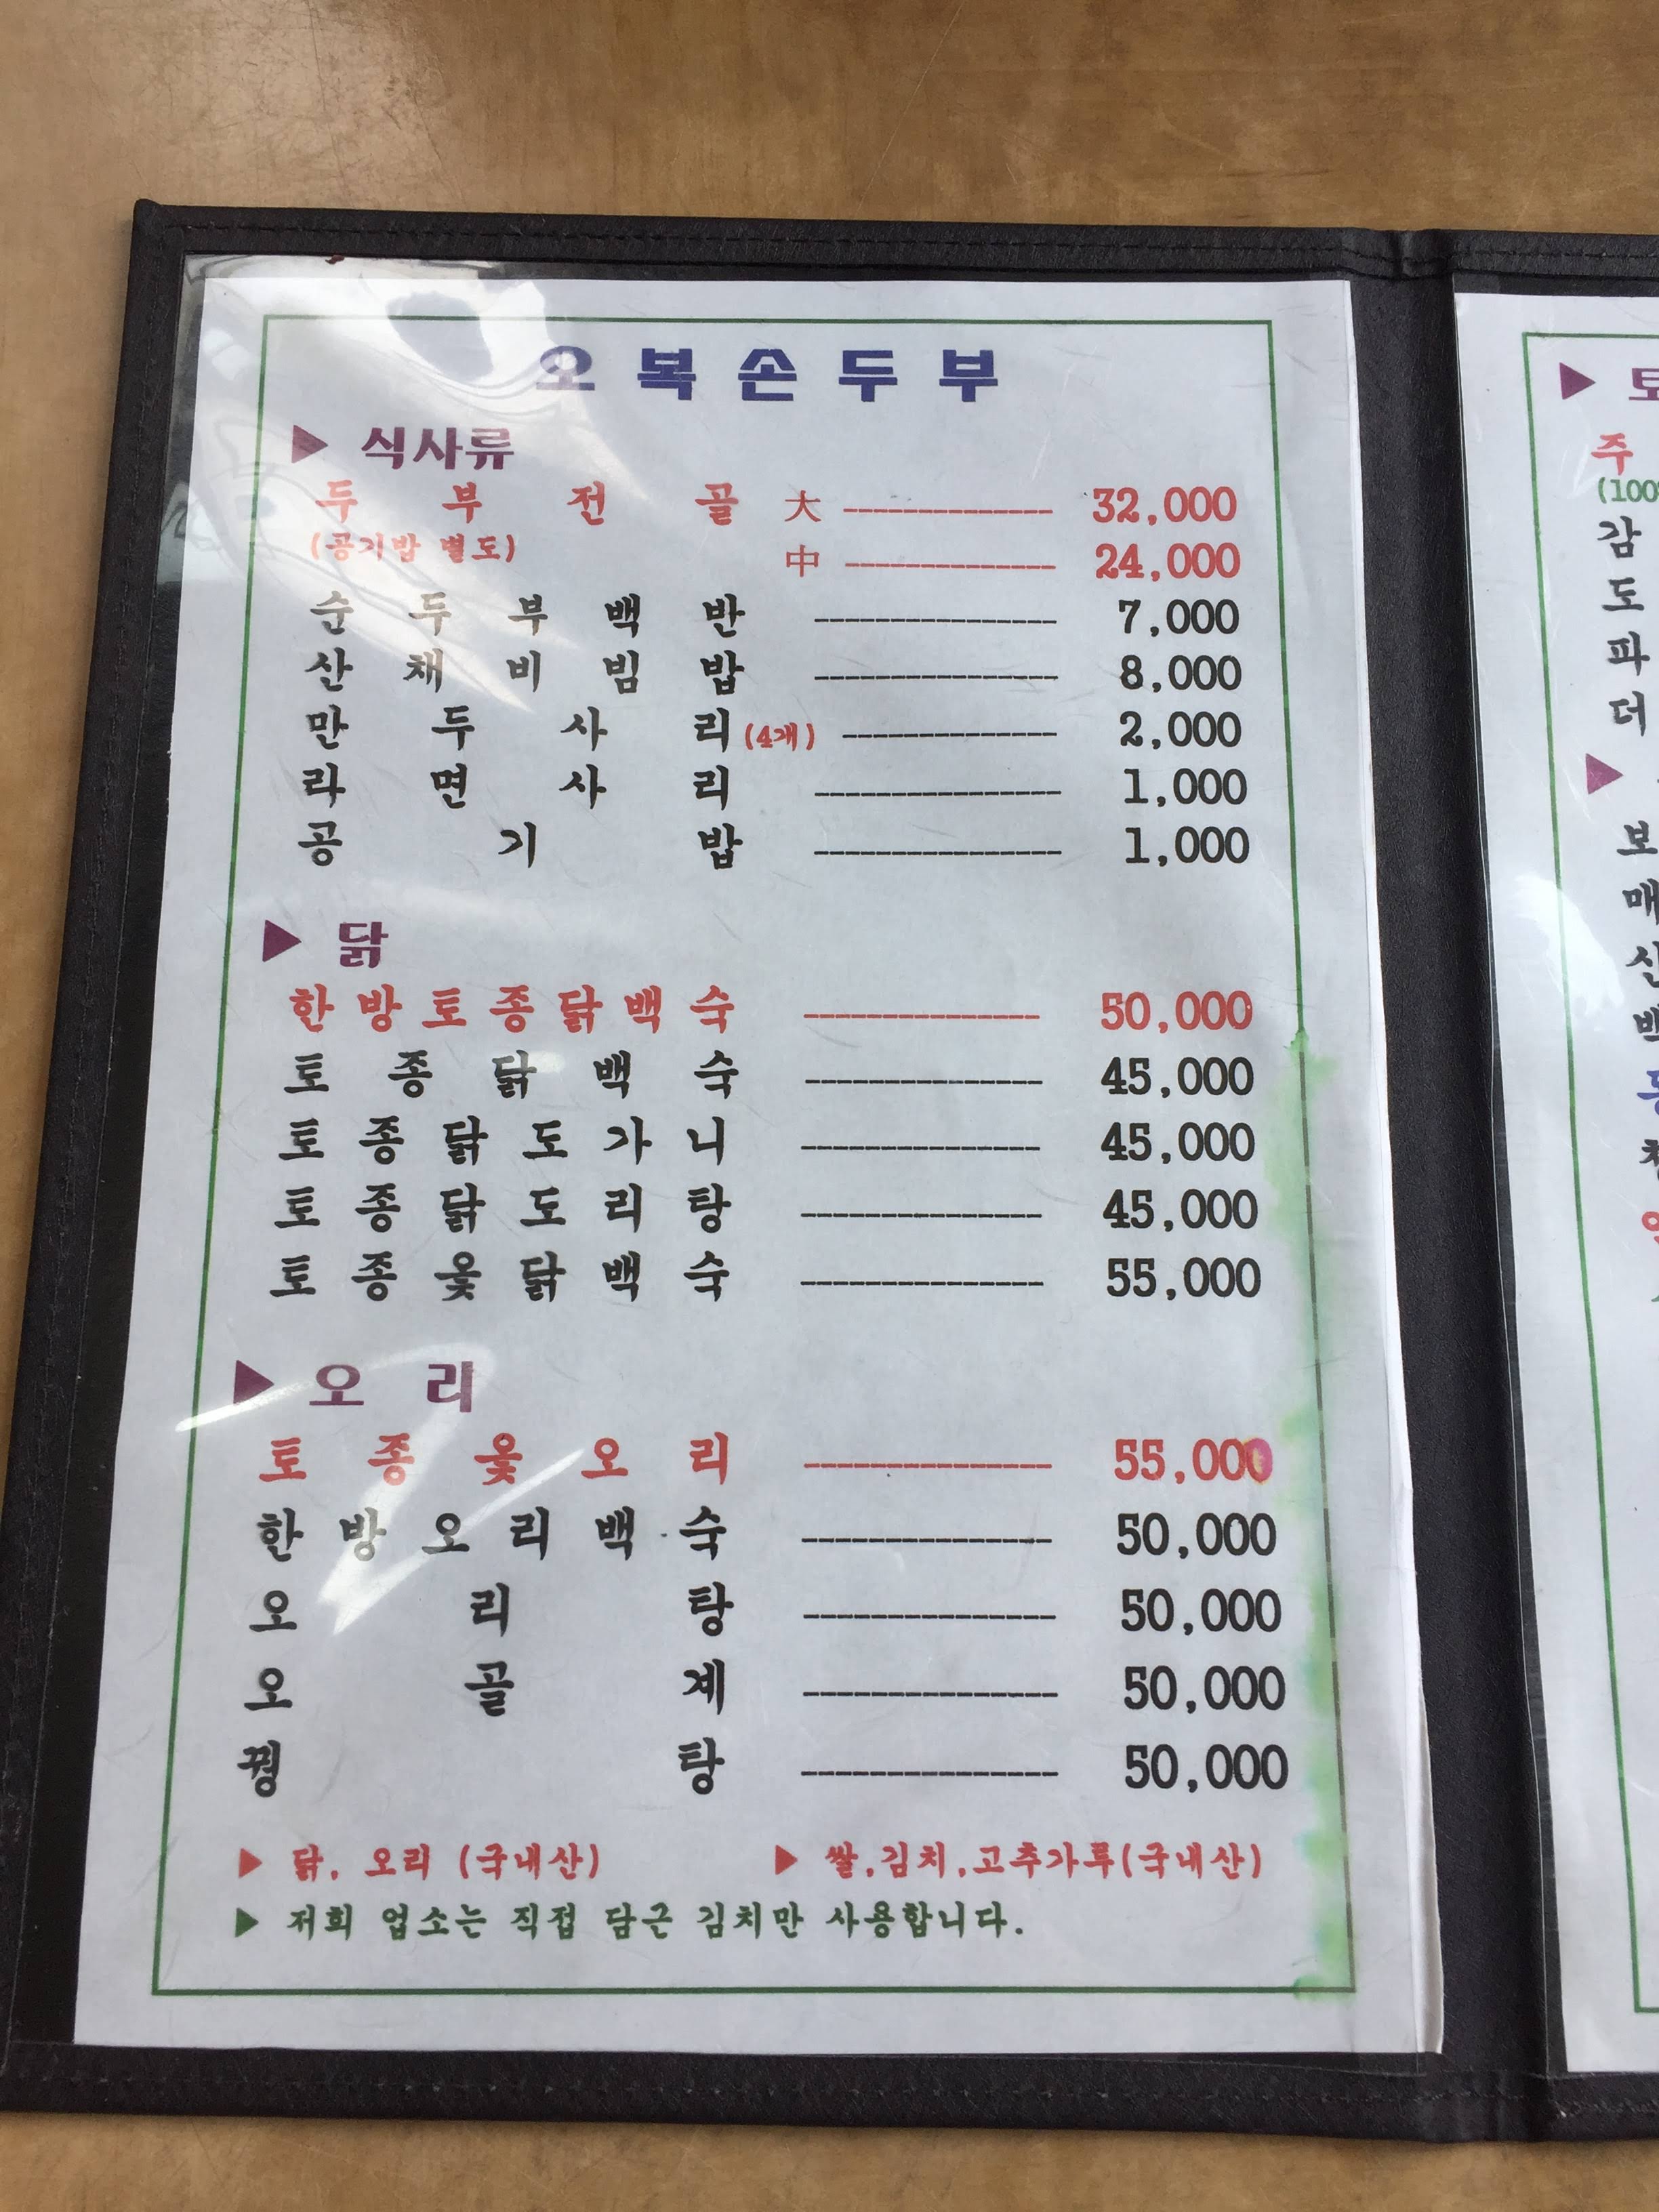 오복손두부
▶ 식사류
두부전골 大 -------------- 32,000
(공기밥 별도) 中 -------------- 24,000
순두부백반 ---------------- 7,000
산채비빔밥 ---------------- 8,000
만두사리(4개) -------------- 2,000
라면사리 ---------------- 1,000
공기밥 ---------------- 1,000
▶ 닭
한방토종닭백숙 ---------------- 50,000
토종닭백숙 ---------------- 45,000
토종닭도가니 ---------------- 45,000
토종닭도리탕 ---------------- 45,000
토종옻닭백숙 ---------------- 55,000
▶ 오리
토종옻오리 ---------------- 55,000
한방오리백숙 ---------------- 50,000
오리탕 ---------------- 50,000
오골계 ---------------- 50,000
꿩탕 ---------------- 50,000
▶ 닭, 오리 (국내산) ▶ 쌀,김치,고추가루(국내산)
▶ 저희 업소는 직접 담근 김치만 사용합니다.
▶ 토
주
(100
감
도
파
더
▶
보
매